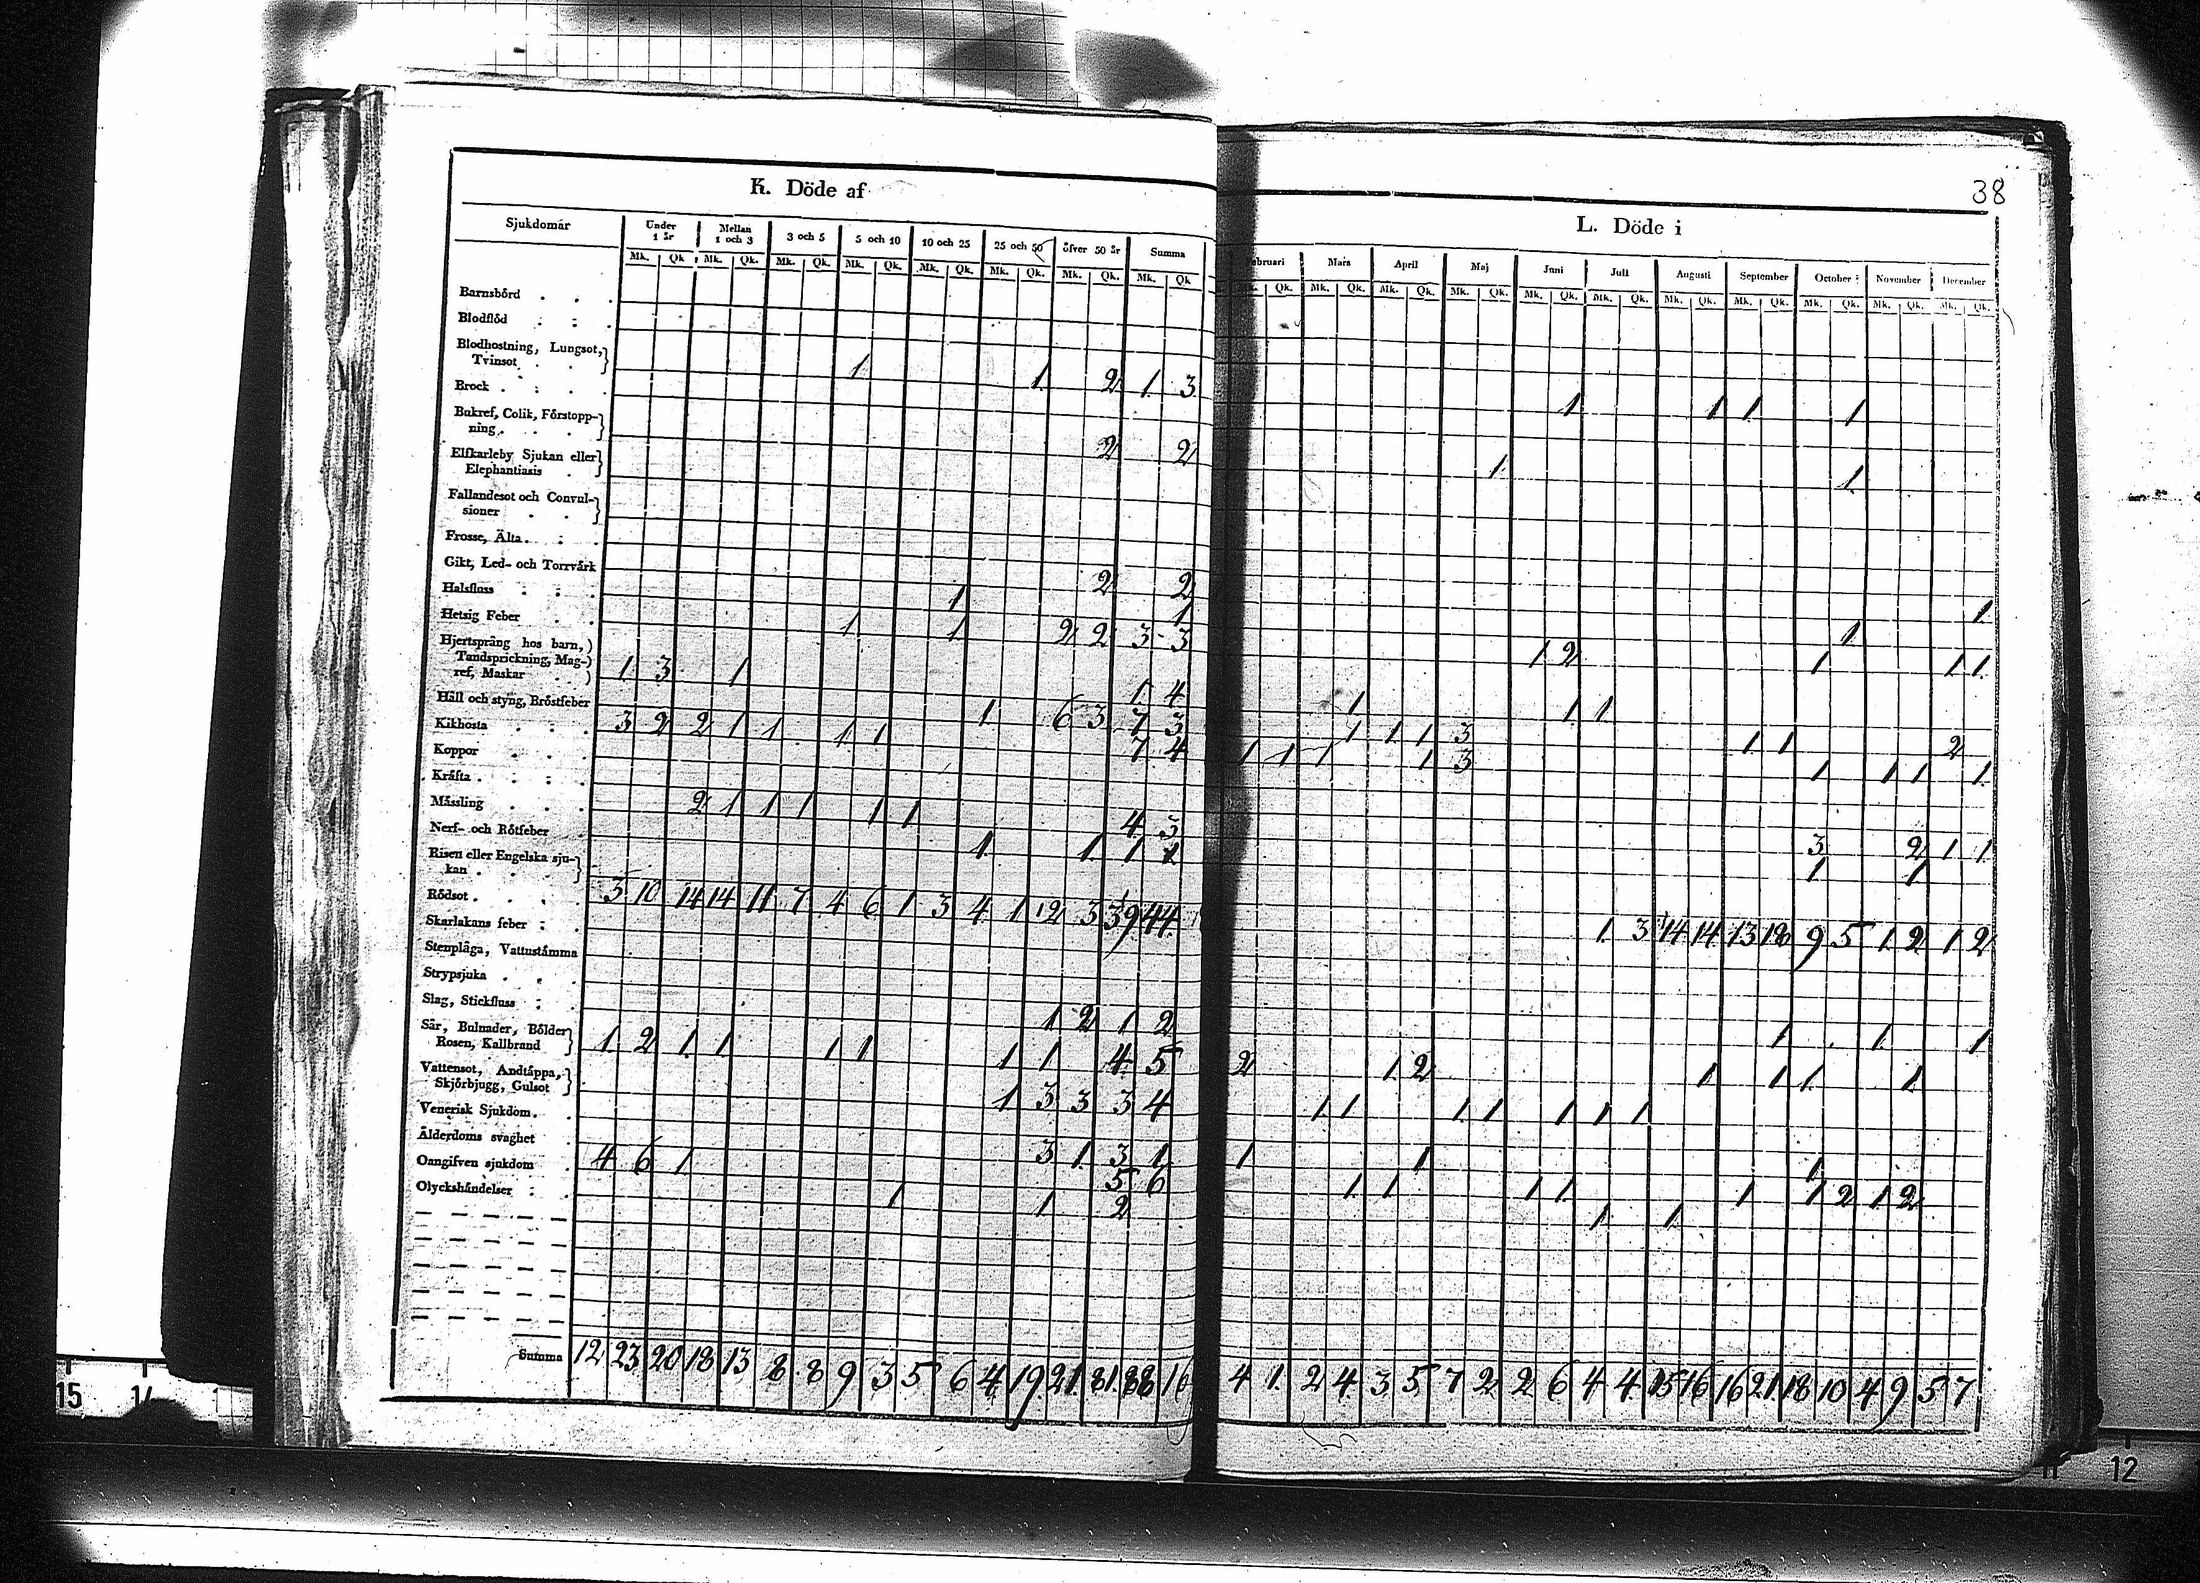 38
K. Döde af
Sjukdomar Under 1 år Mellan 1 och 3 3 och 5 5 och 10 10 och 25 25 och 50 öfver 50 år Summa
Mk. Qk Mk. Qk. Mk. Qk. Mk. Qk. Mk. Qk. Mk. Qk. Mk. Qk. Mk. Qk
Barnsbörd
Blodflöd
Blodhostning, Lungsot,
Tvinsot 1 1 2 1 3
Brock
Bukref, Colik, Förstopp-
ning 2 2
Elfkarleby Sjukan eller
Elephantiasis
Fallandesot och Convul-
sioner
Frosse, Älta
Gikt, Led- och Torrvärk 2 2
Halsfluss 1 1
Hetsig Feber 1 1 2 2 3 3
Hjertsprång hos barn,
Tandsprickning, Mag-
ref, Maskar 1 3 1 1 4
Håll och styng, Bröstfeber 1 6 3 7 3
Kikhosta 3 2 2 1 1 1 1 7 4
Koppor
Kräfta
Mässling 2 1 1 1 1 1 4 3
Nerf- och Rötfeber 1 1 1
Risen eller Engelska sju-
kan
Rödsot 3 10 14 14 11 7 4 6 1 3 4 1 2 3 39 44
Skarlakans feber
Stenplåga, Vattustämma
Strypsjuka
Slag, Stickfluss 1 2 1 2
Sår, Bulnader, Bölder
Rosen, Kallbrand 1 2 1 1 1 1 1 1 4 5
Vattensot, Andtäppa,
Skjörbjugg, Gulsot 1 3 3 3 4
Venerisk Sjukdom
Ålderdoms svaghet 3 1 3 1
Oangifven sjukdom 4 6 1 5 6
Olyckshändelser 1 1 2
Summa 12 23 20 18 13 8 8 9 3 5 6 4 19 21 81 88 16
L. Döde i
ebruari Mars April Maj Juni Juli Augusti September October November December
Qk. Mk. Qk. Mk. Qk. Mk. Qk. Mk. Qk. Mk. Qk. Mk. Qk. Mk. Qk. Mk. Qk. Mk. Qk. Mk. Qk.
1 1 1 1
1 1
1
1
1 2 1 1 1
1 1 1
1 1 1 3 1 1 2
1 1 1 1 3 1 1 1 1
3 2 1 1
1 1
1 3 14 14 13 18 9 5 1 2 1 2
1 1 1
2 1 2 1 1 1 1
1 1 1 1 1 1 1
1 1 1
1 1 1 1 1 1 2 1 2
1 1
4 1 2 4 3 5 7 2 2 6 4 4 15 16 16 21 18 10 4 9 5 7
15 14
11 12